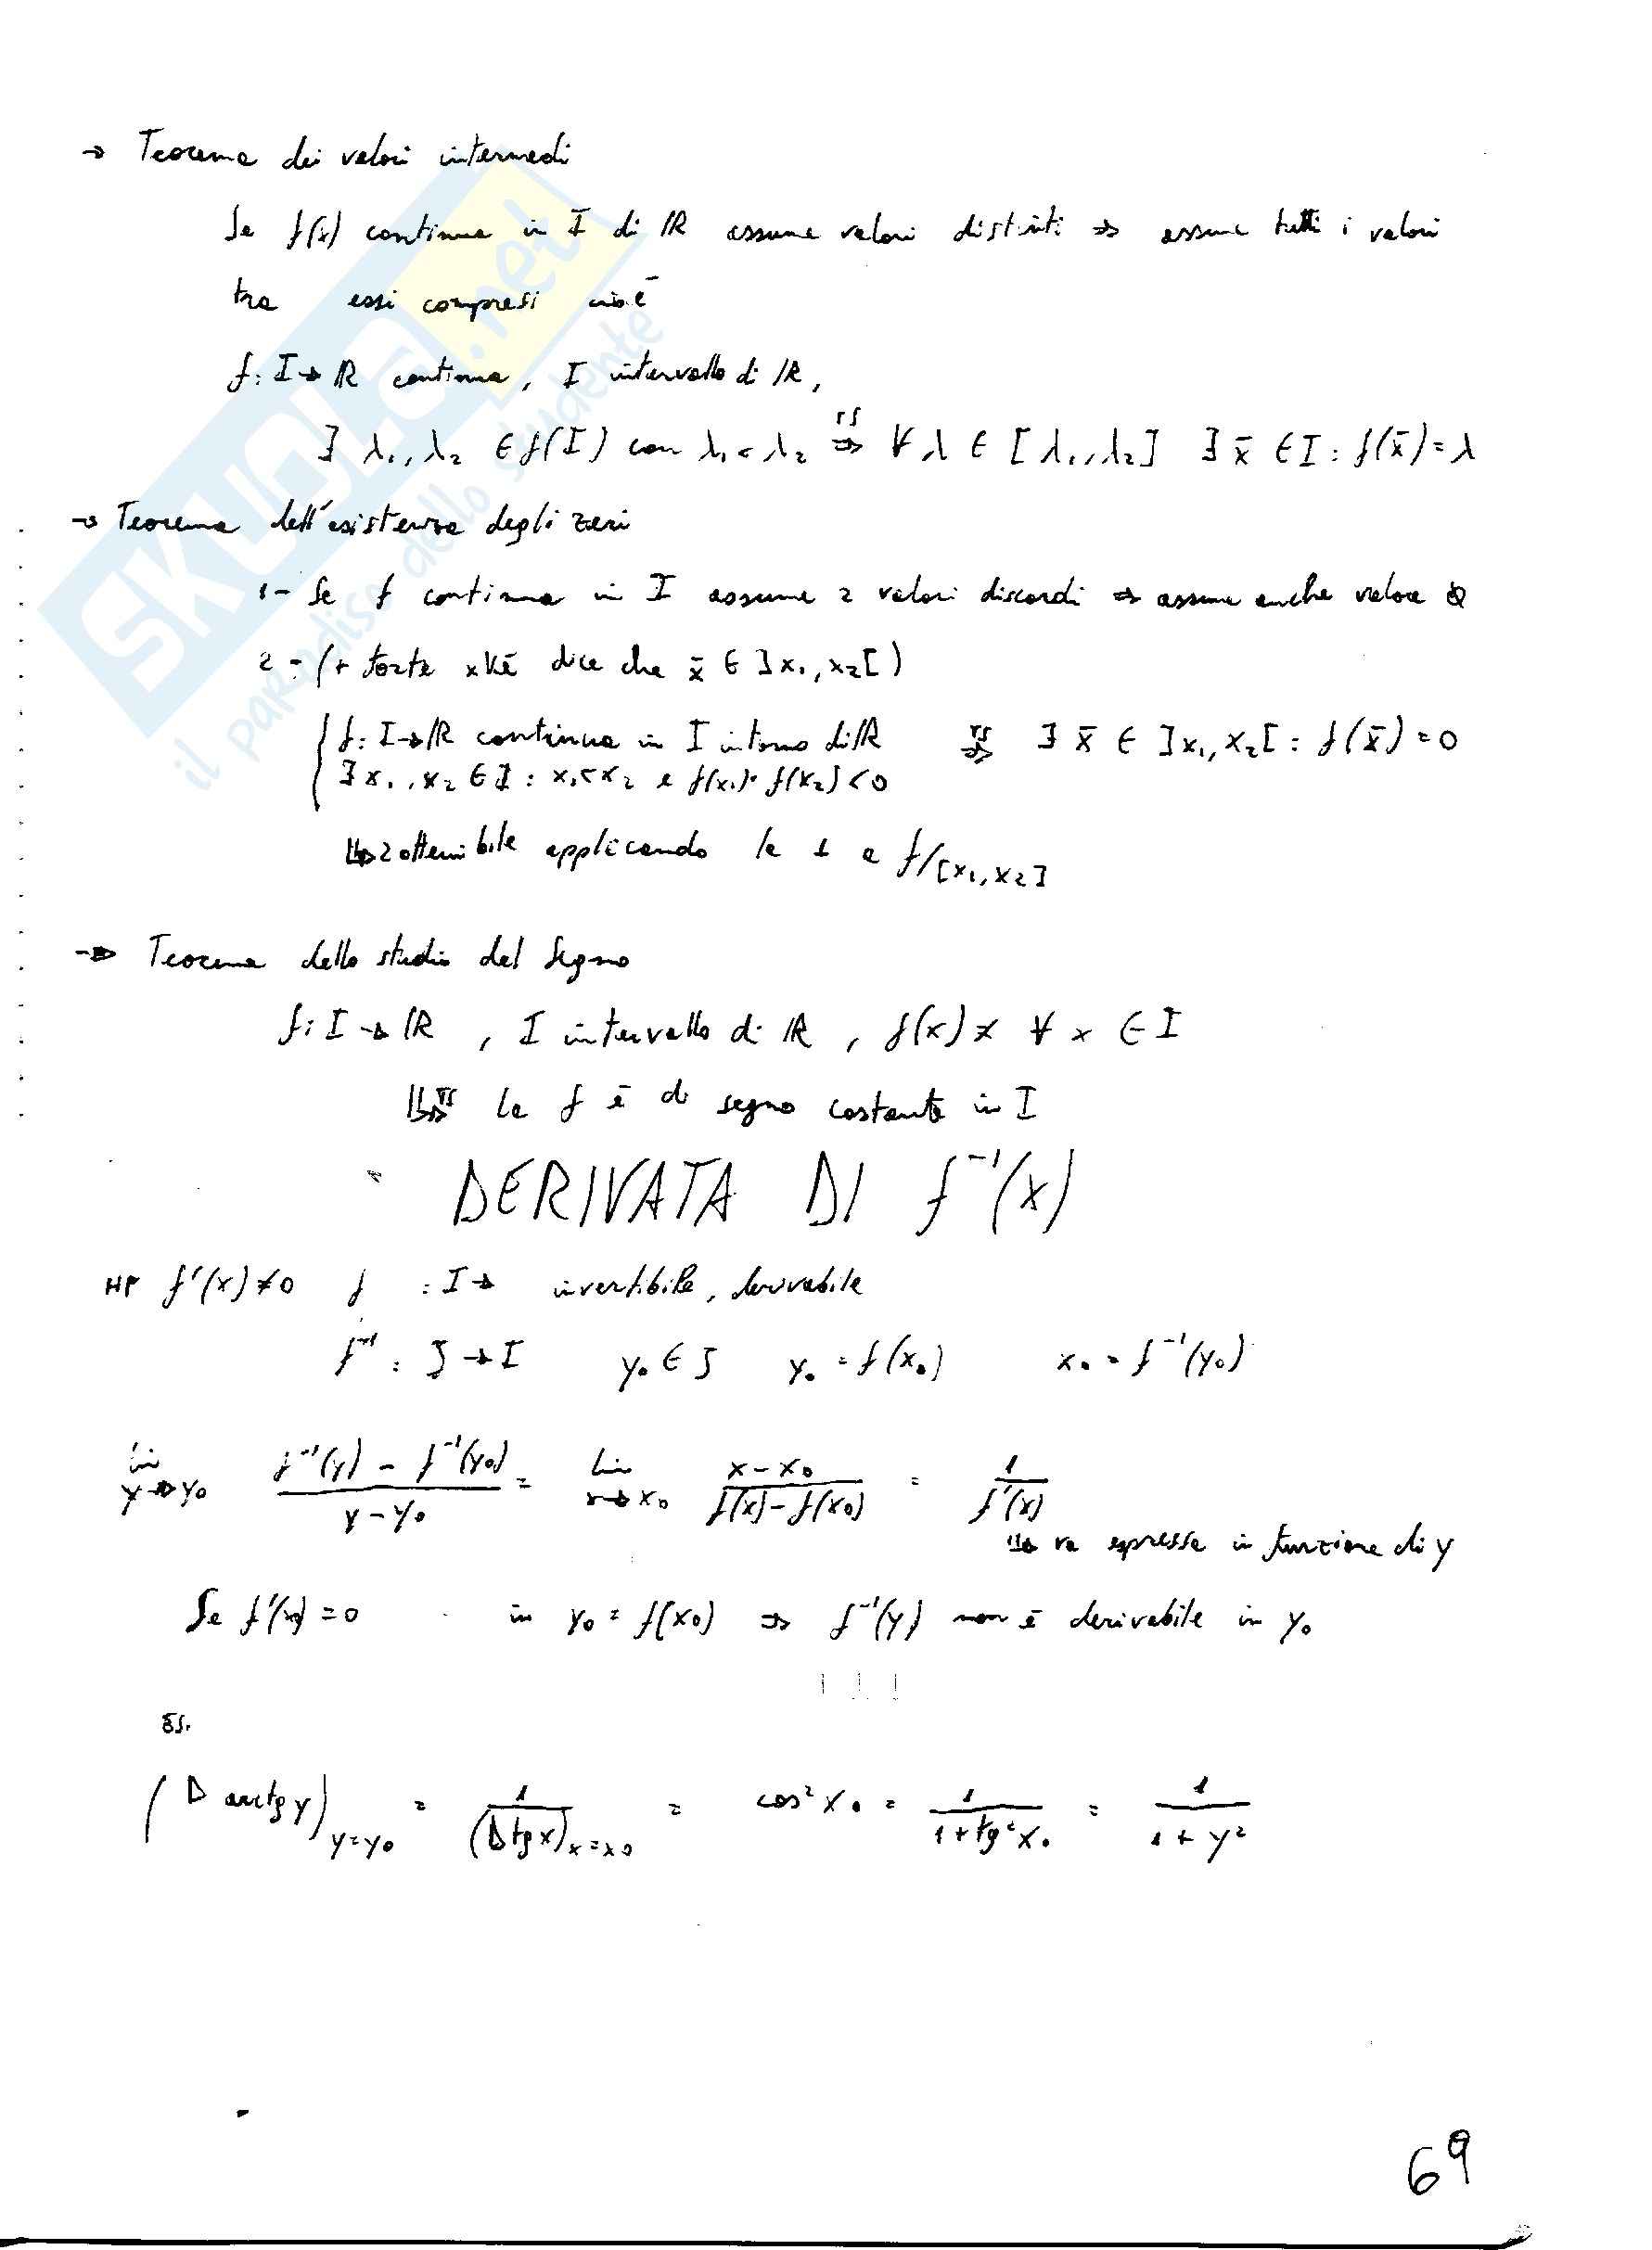 → Teorema dei valori intermedi
Se f(x) continua in I di ℝ assume valori distinti ⇒ assume tutti i valori
tra essi compresi cioè
f: I → ℝ continua, I intervallo di ℝ,
∃ λ₁, λ₂ ∈ f(I) con λ₁ < λ₂ ⇒ ∀ λ ∈ [λ₁, λ₂] ∃ x̄ ∈ I : f(x̄) = λ
→ Teorema dell'esistenza degli zeri
1- Se f continua in I assume 2 valori discordi ⇒ assume anche valore 0
2 - (+ forte xkè dice che x̄ ∈ ]x₁, x₂[)
{ f: I → ℝ continua in I intorno di ℝ ⇒ ∃ x̄ ∈ ]x₁, x₂[ : f(x̄) = 0
∃ x₁, x₂ ∈ I : x₁ < x₂ e f(x₁)· f(x₂) < 0
↳ 2 ottenibile applicando la 1 a f/[x₁, x₂]
→ Teorema dello studio del segno
f: I → ℝ , I intervallo di ℝ , f(x) ≠ ∀ x ∈ I
⇒ la f è di segno costante in I
DERIVATA DI f⁻¹(x)
HP f'(x) ≠ 0 f : I → invertibile, derivabile
f⁻¹ : J → I y₀ ∈ J y₀ = f(x₀) x₀ = f⁻¹(y₀)
lim y→y₀ (f⁻¹(y) - f⁻¹(y₀))/(y - y₀) = lim x→x₀ (x - x₀)/(f(x) - f(x₀)) = 1/f'(x)
↳ va espressa in funzione di y
Se f'(x₀) = 0 in y₀ = f(x₀) ⇒ f⁻¹(y) non è derivabile in y₀
ES.
(D arctg y) y=y₀ = 1/(D tg x) x=x₀ = cos² x₀ = 1/(1 + tg² x₀) = 1/(1 + y²)
69
SKUOLA.net
il paradiso dello studente